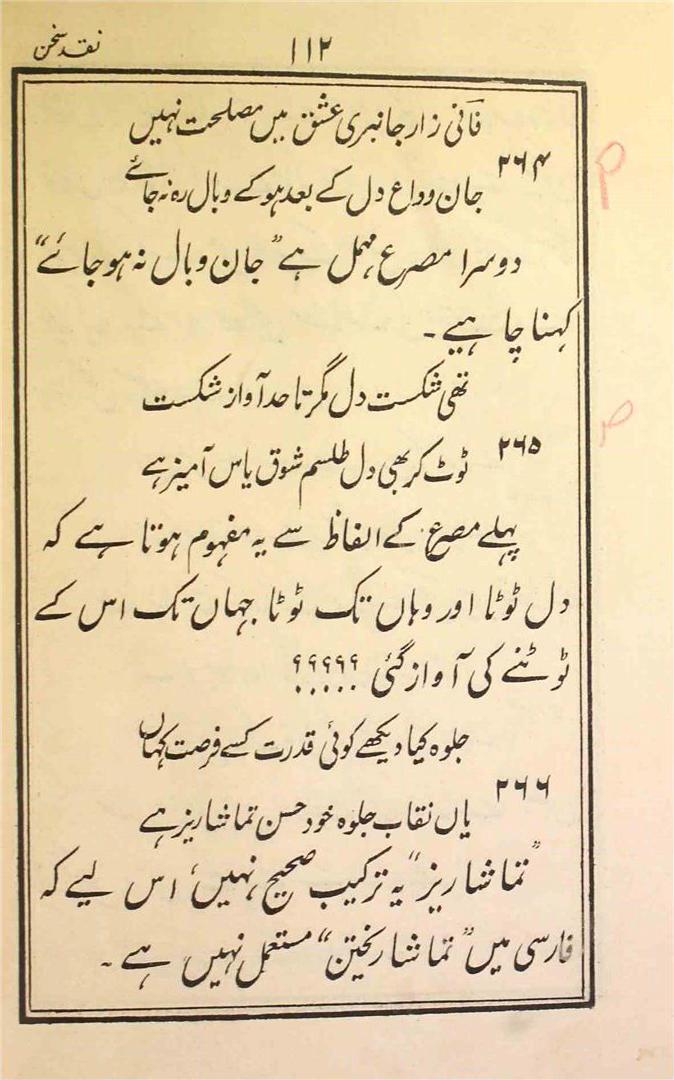 نقد سخن
۱۱۲
فانیؔ زار جانبری عشق میں مصلحت نہیں
۲۶۴
جان وداع دل کے بعد ہو کے وبال رہ نہ جائے
دوسرا مصرع مہمل ہے ”جان وبال نہ ہو جائے“
کہنا چاہیے۔
تھی شکست دل مگر تا حد آواز شکست
۲۶۵
ٹوٹ کر بھی دل طلسم شوق یاس آمیز ہے
پہلے مصرع کے الفاظ سے یہ مفہوم ہوتا ہے کہ
دل ٹوٹا اور وہاں تک ٹوٹا جہاں تک اس کے
ٹوٹنے کی آواز گئی ؟؟؟؟؟
جلوہ کیا دیکھے کوئی قدرت کسے فرصت کہاں
۲۶۶
یاں نقاب جلوہ خود حسن تماشا ریز ہے
”تماشا ریز“ یہ ترکیب صحیح نہیں، اس لیے کہ
فارسی میں ”تماشا ریختن“ مستعمل نہیں ہے۔